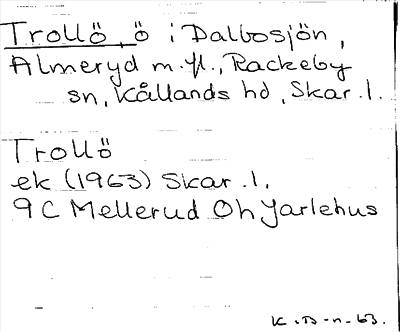 Trollö, ö i Dalbosjön,
Almeryd m.fl., Rackeby
sn, Kållands hd, Skar.l.
Trollö
ek (1963) Skar.l.
9C Mellerud Oh Jarlehus
K.B-n-63.